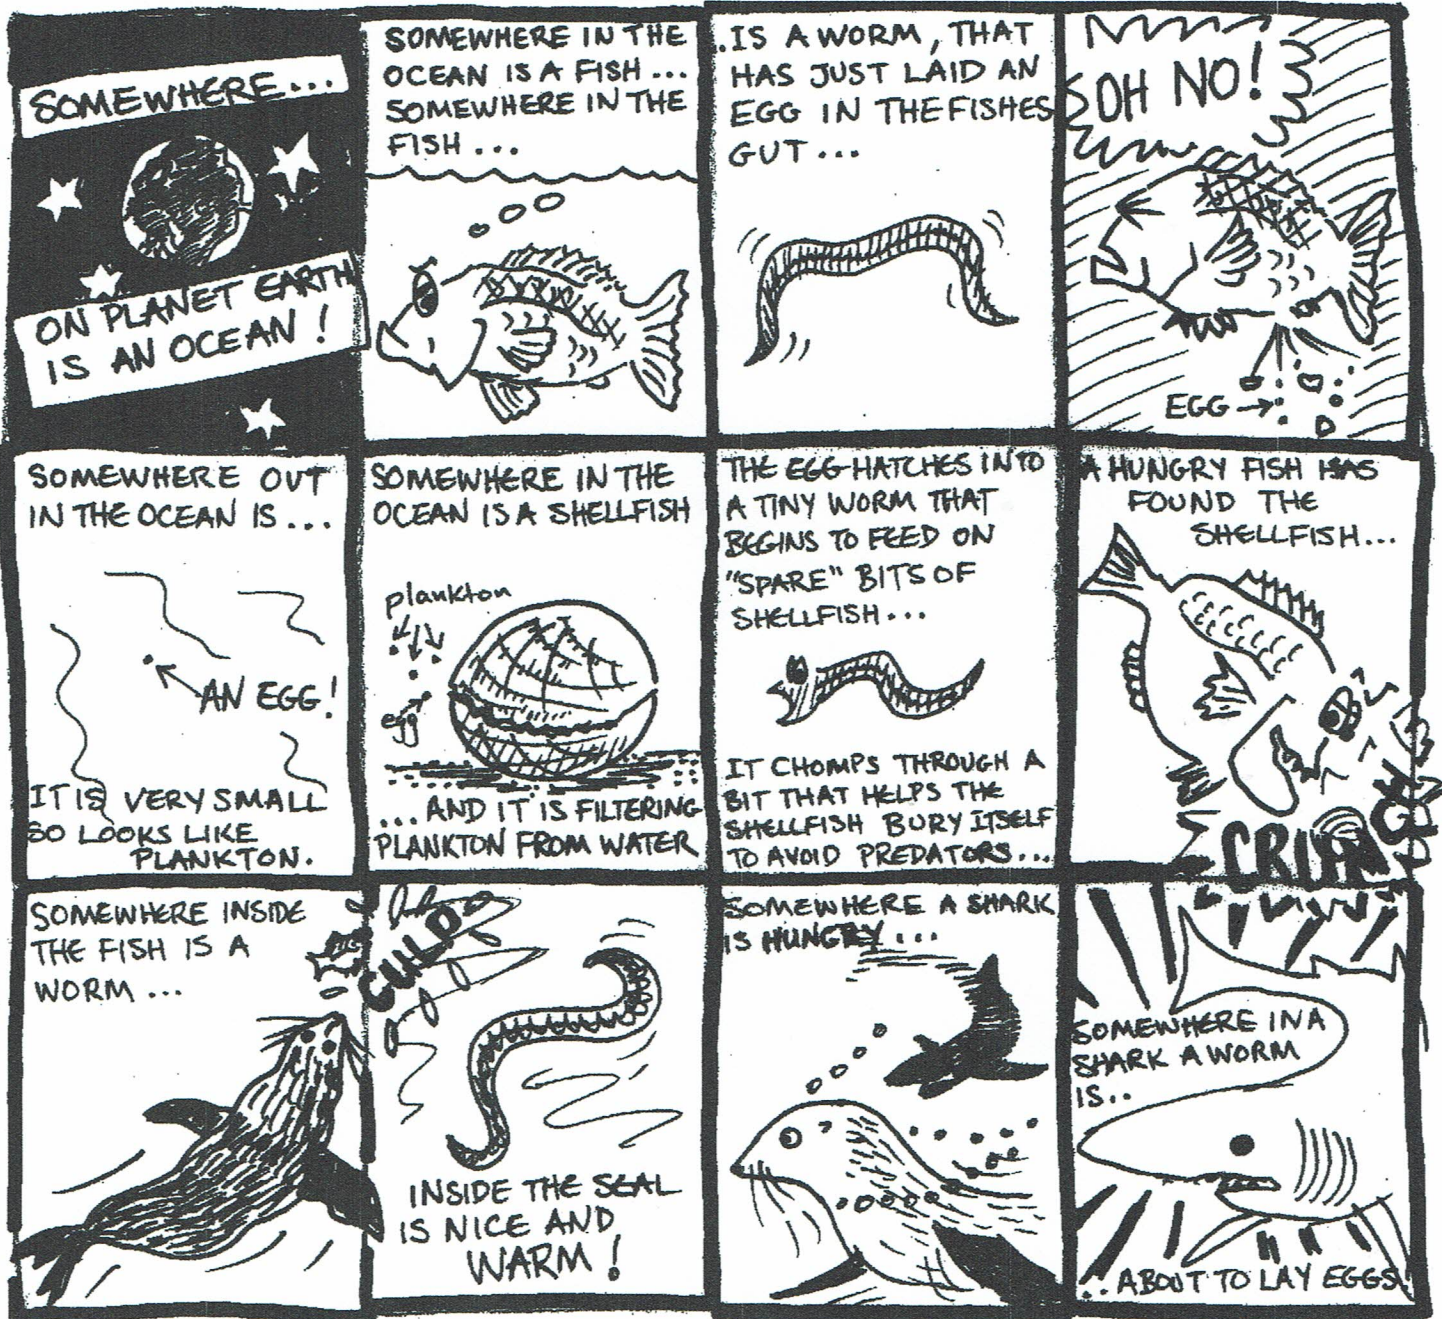 SOMEWHERE...
ON PLANET EARTH
IS AN OCEAN!
SOMEWHERE IN THE
OCEAN IS A FISH...
SOMEWHERE IN THE
FISH...
.IS A WORM, THAT
HAS JUST LAID AN
EGG IN THE FISHES
GUT...
OH NO!
EGG
SOMEWHERE OUT
IN THE OCEAN IS...
AN EGG!
IT IS VERY SMALL
SO LOOKS LIKE
PLANKTON.
SOMEWHERE IN THE
OCEAN IS A SHELLFISH
plankton
egg
...AND IT IS FILTERING
PLANKTON FROM WATER
THE EGG HATCHES INTO
A TINY WORM THAT
BEGINS TO FEED ON
"SPARE" BITS OF
SHELLFISH...
IT CHOMPS THROUGH A
BIT THAT HELPS THE
SHELLFISH BURY ITSELF
TO AVOID PREDATORS...
A HUNGRY FISH HAS
FOUND THE
SHELLFISH...
SOMEWHERE INSIDE
THE FISH IS A
WORM...
GULP
INSIDE THE SEAL
IS NICE AND
WARM!
SOMEWHERE A SHARK
IS HUNGRY...
SOMEWHERE IN A
SHARK A WORM
IS..
..ABOUT TO LAY EGGS